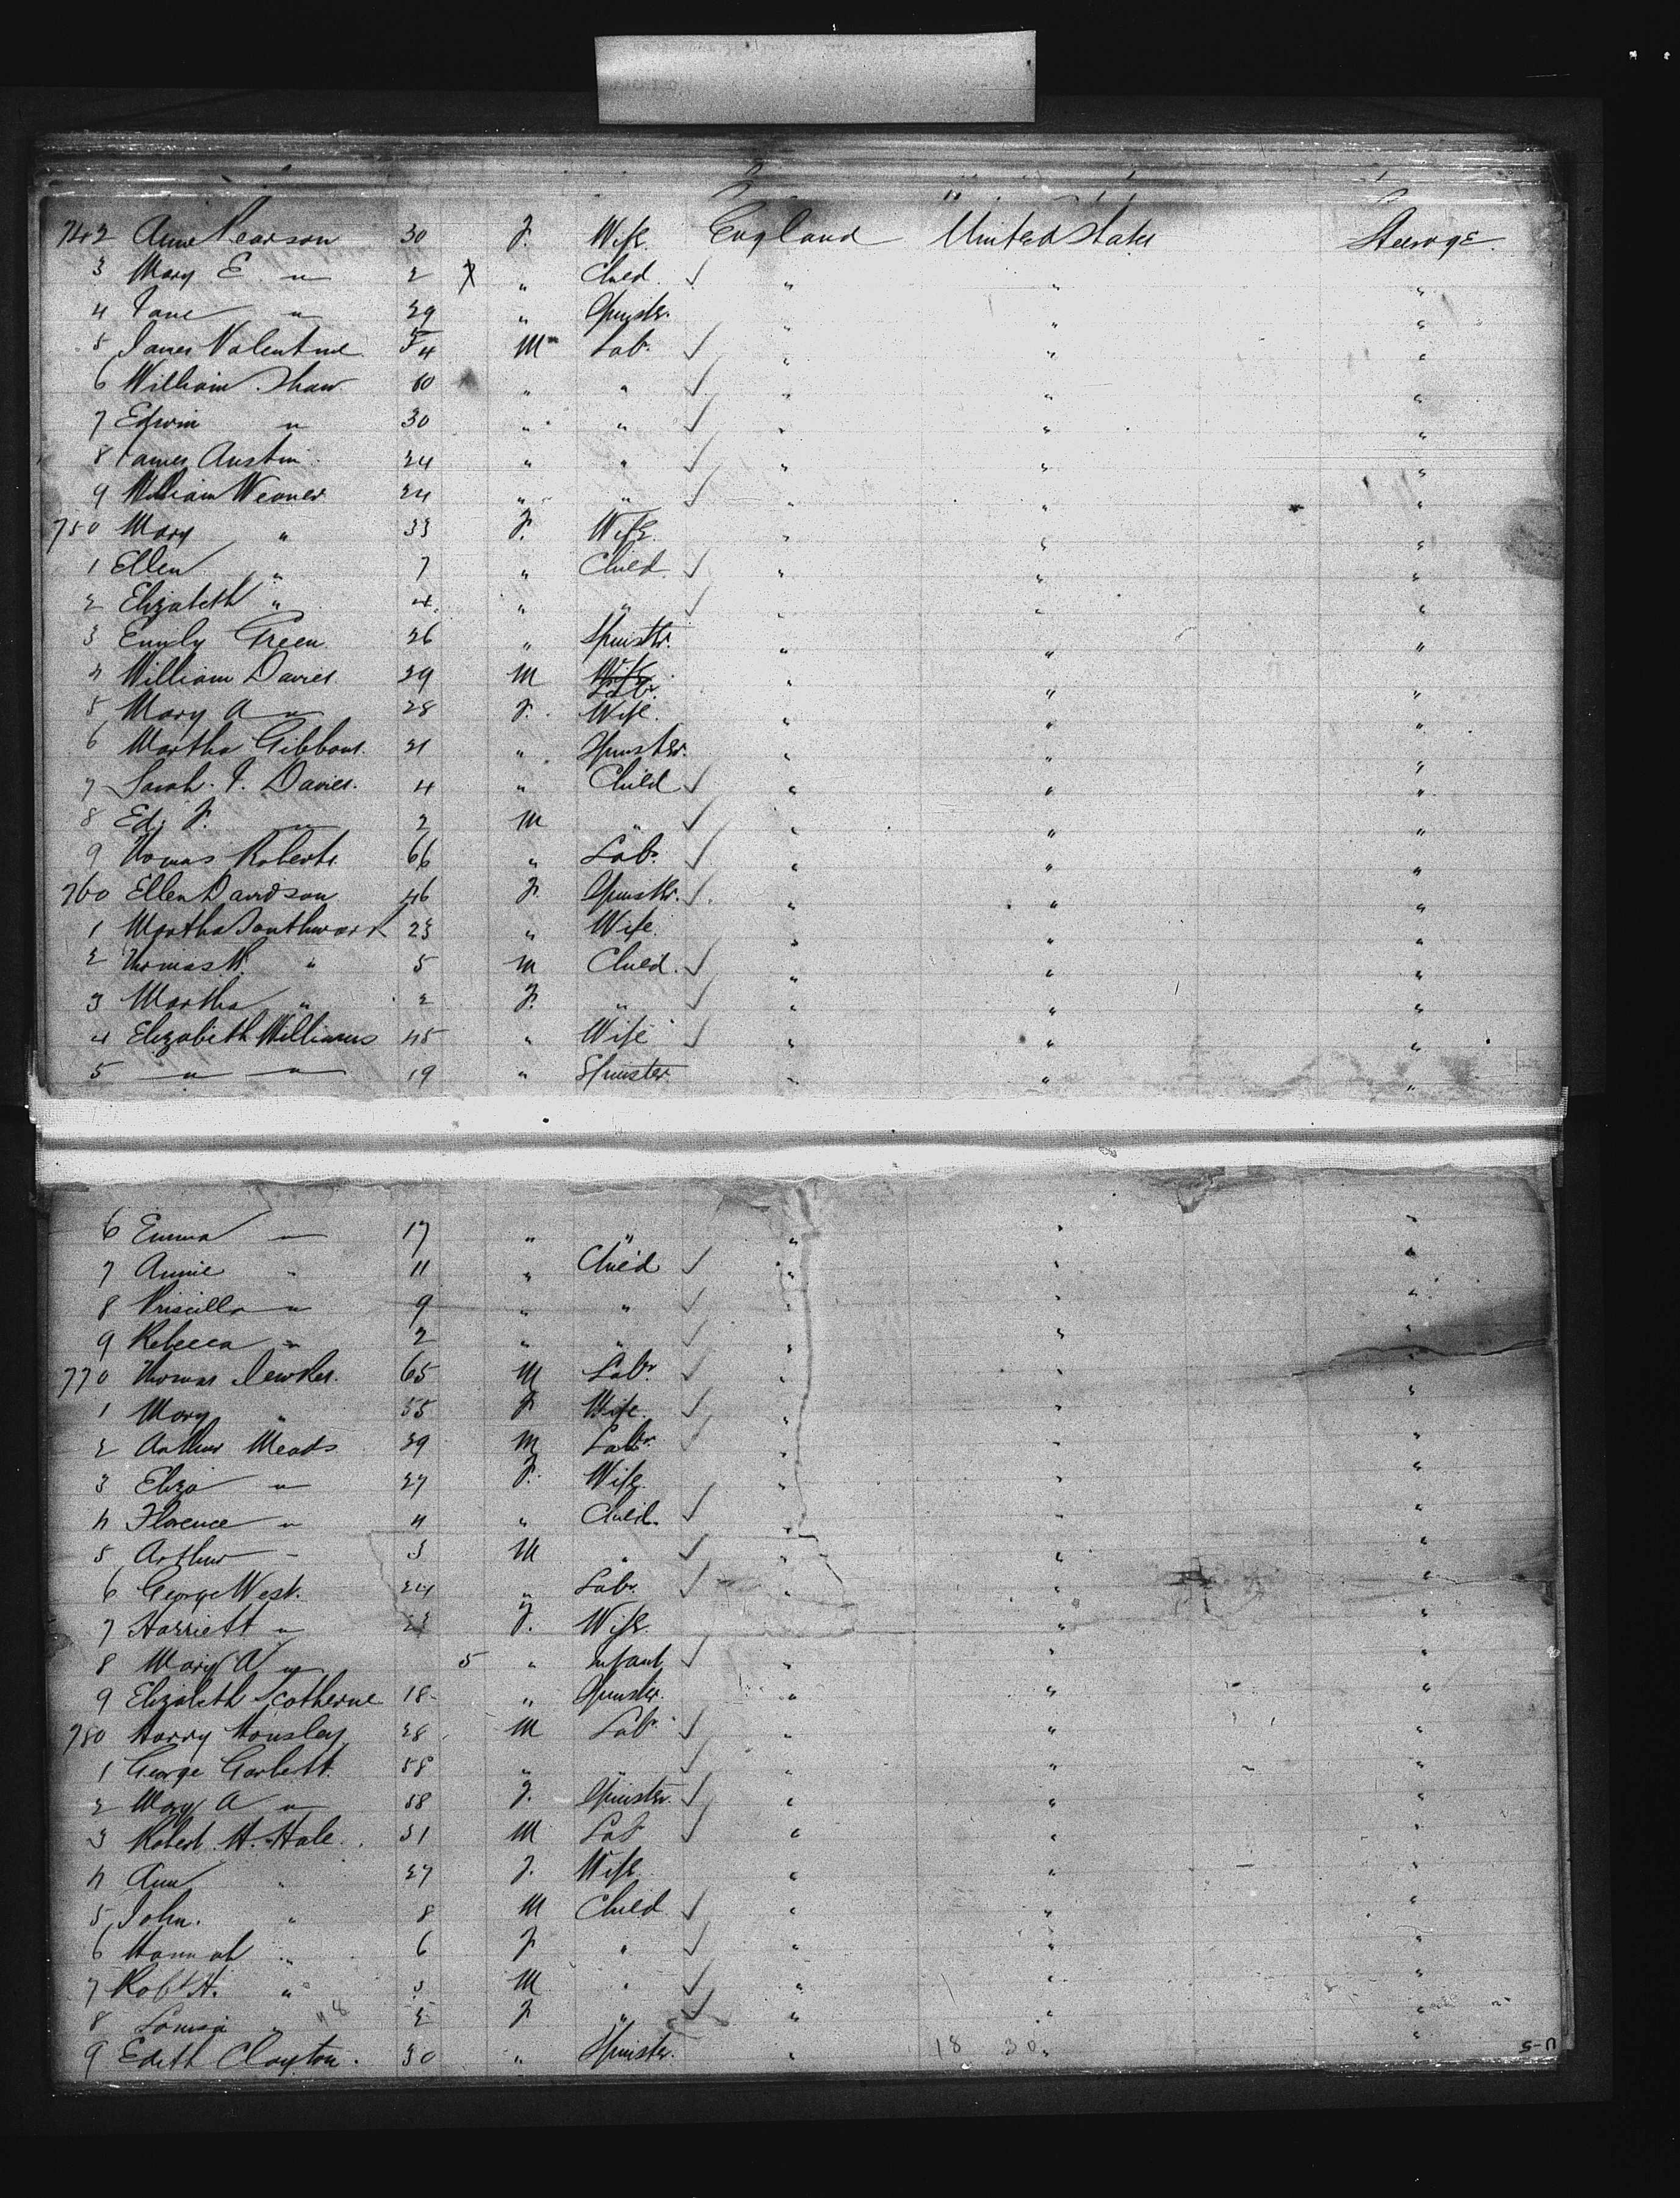 742 Anne Pearson 30 F. Wife. England United States Steerage.
3 Mary E. " 2 X " Child. ✓ " " "
4 Jane " 29 " Spinster. " " "
5 James Valentine 54 M Labr. ✓ " " "
6 William Shaw 60 " " ✓ " " "
7 Edwin " 30 " " ✓ " " "
8 James Austin 24 " " ✓ " " "
9 William Weaver 24 " " ✓ " " "
750 Mary " 33 F. Wife. " " "
1 Ellen " 7 " Child. ✓ " " "
2 Elizabeth " 4 " " ✓ " " "
3 Emily Green 26 " Spinstr. " " "
4 William Davies 29 M Labr. " " "
5 Mary A " 28 F. Wife. " " "
6 Martha Gibbons. 21 " Spinster. " " "
7 Sarah. J. Davies. 4 " Child ✓ " " "
8 Ed. J. " 2 M " ✓ " " "
9 Thomas Roberts. 66 " Labr. ✓ " " "
760 Ellen Davidson 46 F. Spinstr. ✓ " " "
1 Martha Southwark 23 " Wife. " " "
2 Thomas W. " 5 M Child. ✓ " " "
3 Martha " 2 F. " ✓ " " "
4 Elizabeth Williams 45 " Wife ✓ " " "
5 " " 19 " Spinster " " "
6 Emma " 17 " " " " "
7 Annie " 11 " Child ✓ " " "
8 Priscilla " 9 " " ✓ " " "
9 Rebecca " 2 " " ✓ " " "
770 Thomas 65 M Labr. ✓ " " "
1 Mary " 55 F Wife. ✓ " " "
2 Arthur Meads 29 M Labr. ✓ " " "
3 Eliza " 27 F. Wife. " " "
4 Florence " 4 " Child. ✓ " " "
5 Arthur " 3 M " ✓ " " "
6 George West. 24 " Labr. ✓ " " "
7 Harriett " 23 F. Wife. " " "
8 Mary A " 5 " Infant ✓ " " "
9 Elizabeth Scotherne 18 " Spinster. " " "
780 Harry Housley 28 M Labr ✓ " " "
1 George Garbett. 58 " " ✓ " " "
2 Mary A " 58 F. Spinster. ✓ " " "
3 Robert H. Hale. 31 M Labr ✓ " " "
4 Ann " 27 F. Wife. " " "
5 John. " 8 M Child ✓ " " "
6 Hannah " 6 F " ✓ " " "
7 Robt H. " 3 M " ✓ " " "
8 Louisa " 2 F " ✓ " " "
9 Edith Clayton. 30 " Spinster. " 18 30 " "